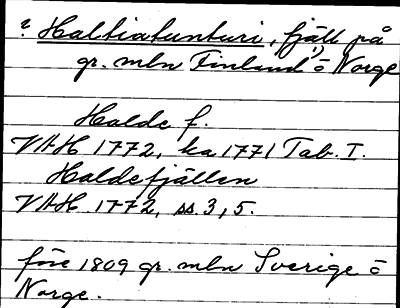 ? Haltiatunturi, fjäll på
gr. mln Finland o Norge
Halde f.
VAH 1772, ka 1771 Tab. I.
Haldefjällen
VAH 1772, ss. 3, 5.
före 1809 gr. mln Sverige o
Norge.